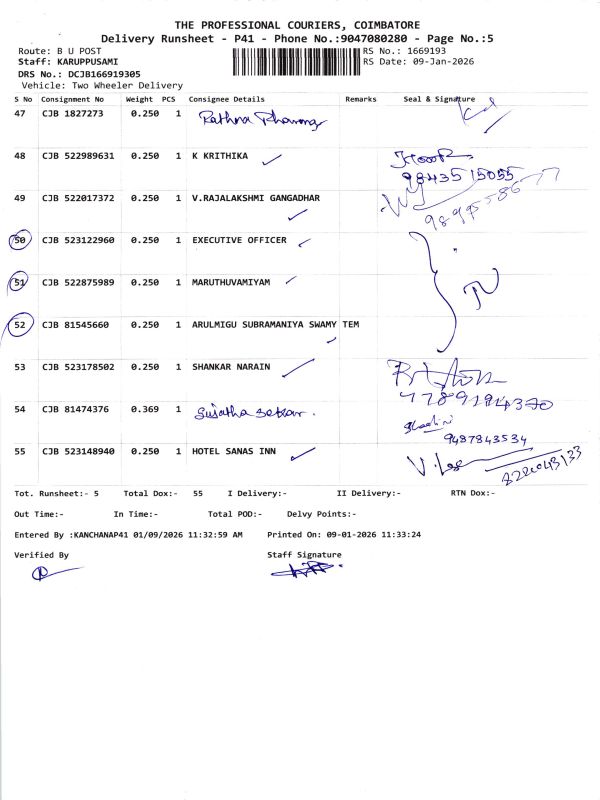 THE PROFESSIONAL COURIERS, COIMBATORE
Delivery Runsheet - P41 - Phone No.:9047080280 - Page No.:5
Route: B U POST
RS No.: 1669193
Staff: KARUPPUSAMI
RS Date: 09-Jan-2026
DRS No.: DCJB166919305
Vehicle: Two Wheeler Delivery
S No Consignment No Weight PCS Consignee Details Remarks Seal & Signature
47 CJB 1827273 0.250 1 Rathna
48 CJB 522989631 0.250 1 K KRITHIKA
9843515055
49 CJB 522017372 0.250 1 V.RAJALAKSHMI GANGADHAR
50 CJB 523122960 0.250 1 EXECUTIVE OFFICER
51 CJB 522875989 0.250 1 MARUTHUVAMIYAM
52 CJB 81545660 0.250 1 ARULMIGU SUBRAMANIYA SWAMY TEM
53 CJB 523178502 0.250 1 SHANKAR NARAIN
54 CJB 81474376 0.369 1 Sujatha
9487843534
55 CJB 523148940 0.250 1 HOTEL SANAS INN
Tot. Runsheet:- 5 Total Dox:- 55 I Delivery:- II Delivery:- RTN Dox:-
Out Time:- In Time:- Total POD:- Delvy Points:-
Entered By :KANCHANAP41 01/09/2026 11:32:59 AM Printed On: 09-01-2026 11:33:24
Verified By Staff Signature